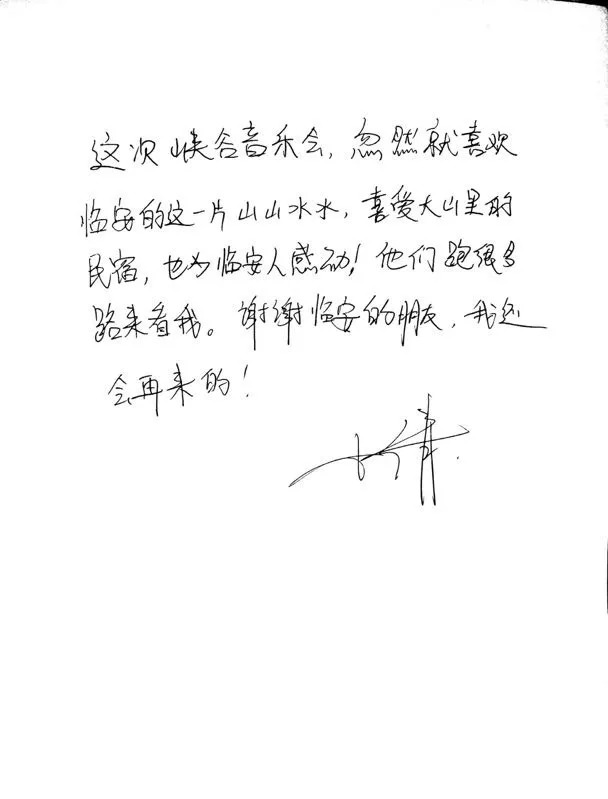 这次峡谷音乐会，忽然就喜欢
临安的这一片山山水水，喜爱大山里的
民宿，也为临安人感动！他们跑很多
路来看我。谢谢临安的朋友，我还
会再来的！